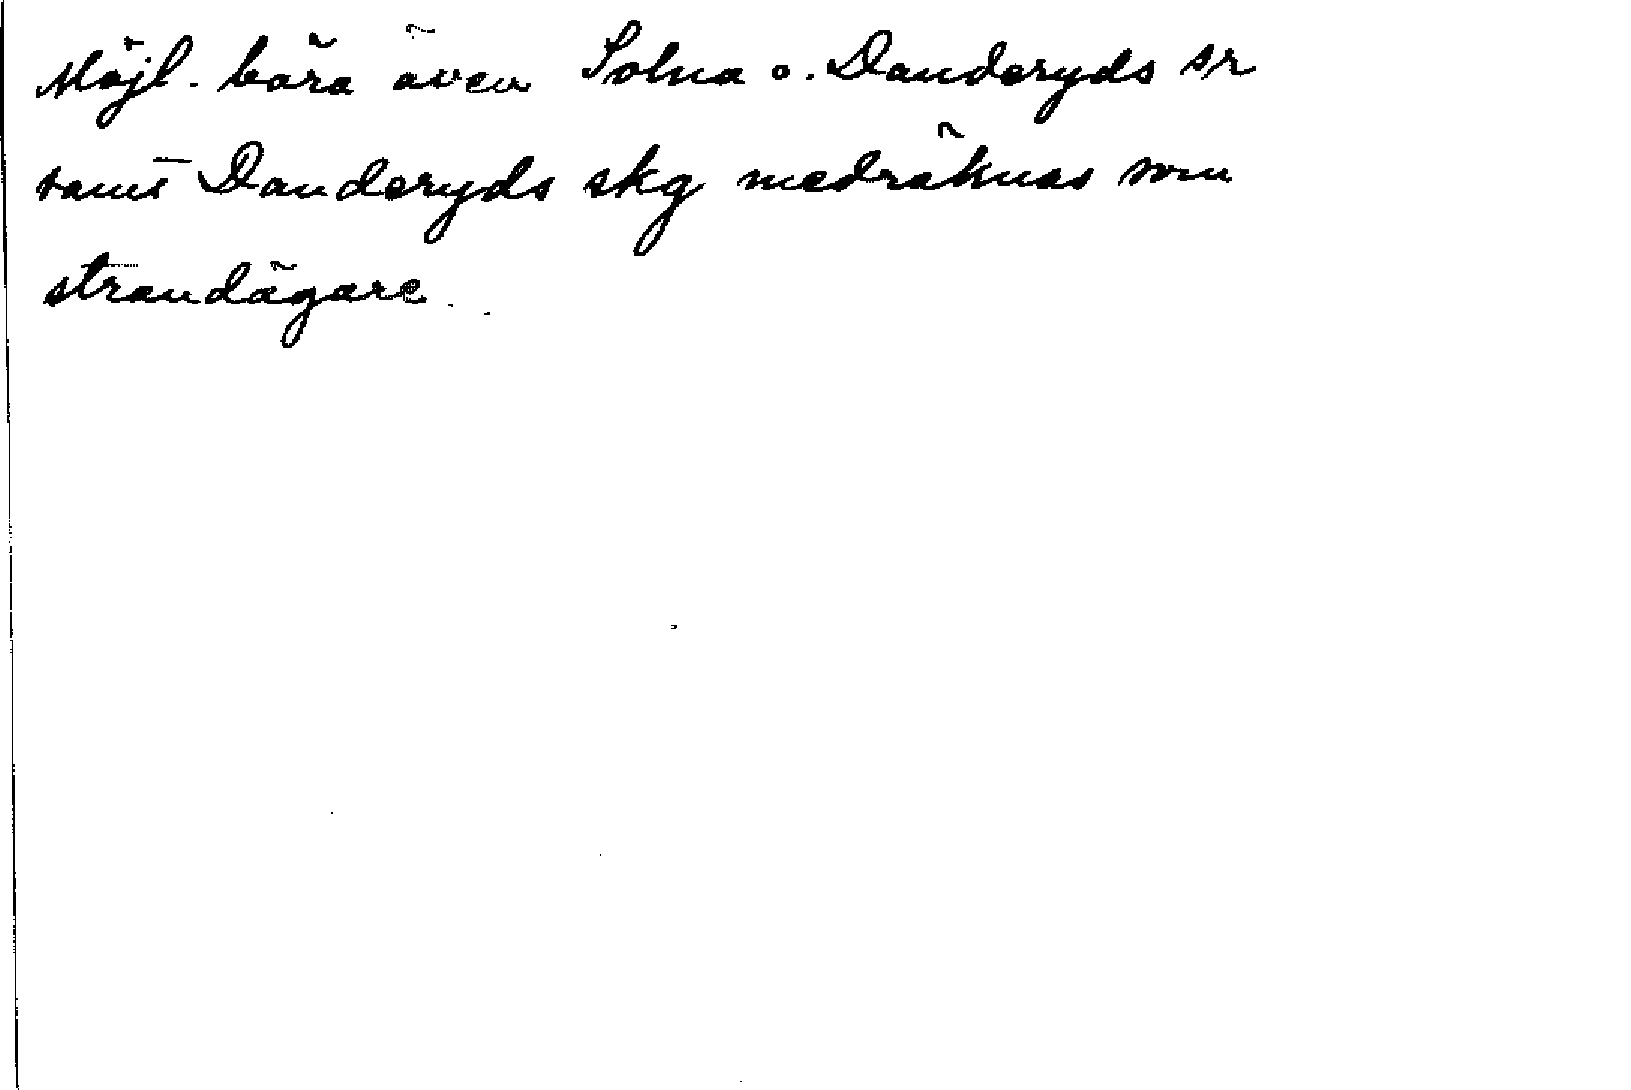 Möjl. böra även Solna o. Danderyds sr
samt Danderyds skg medräknas som
strandägare.